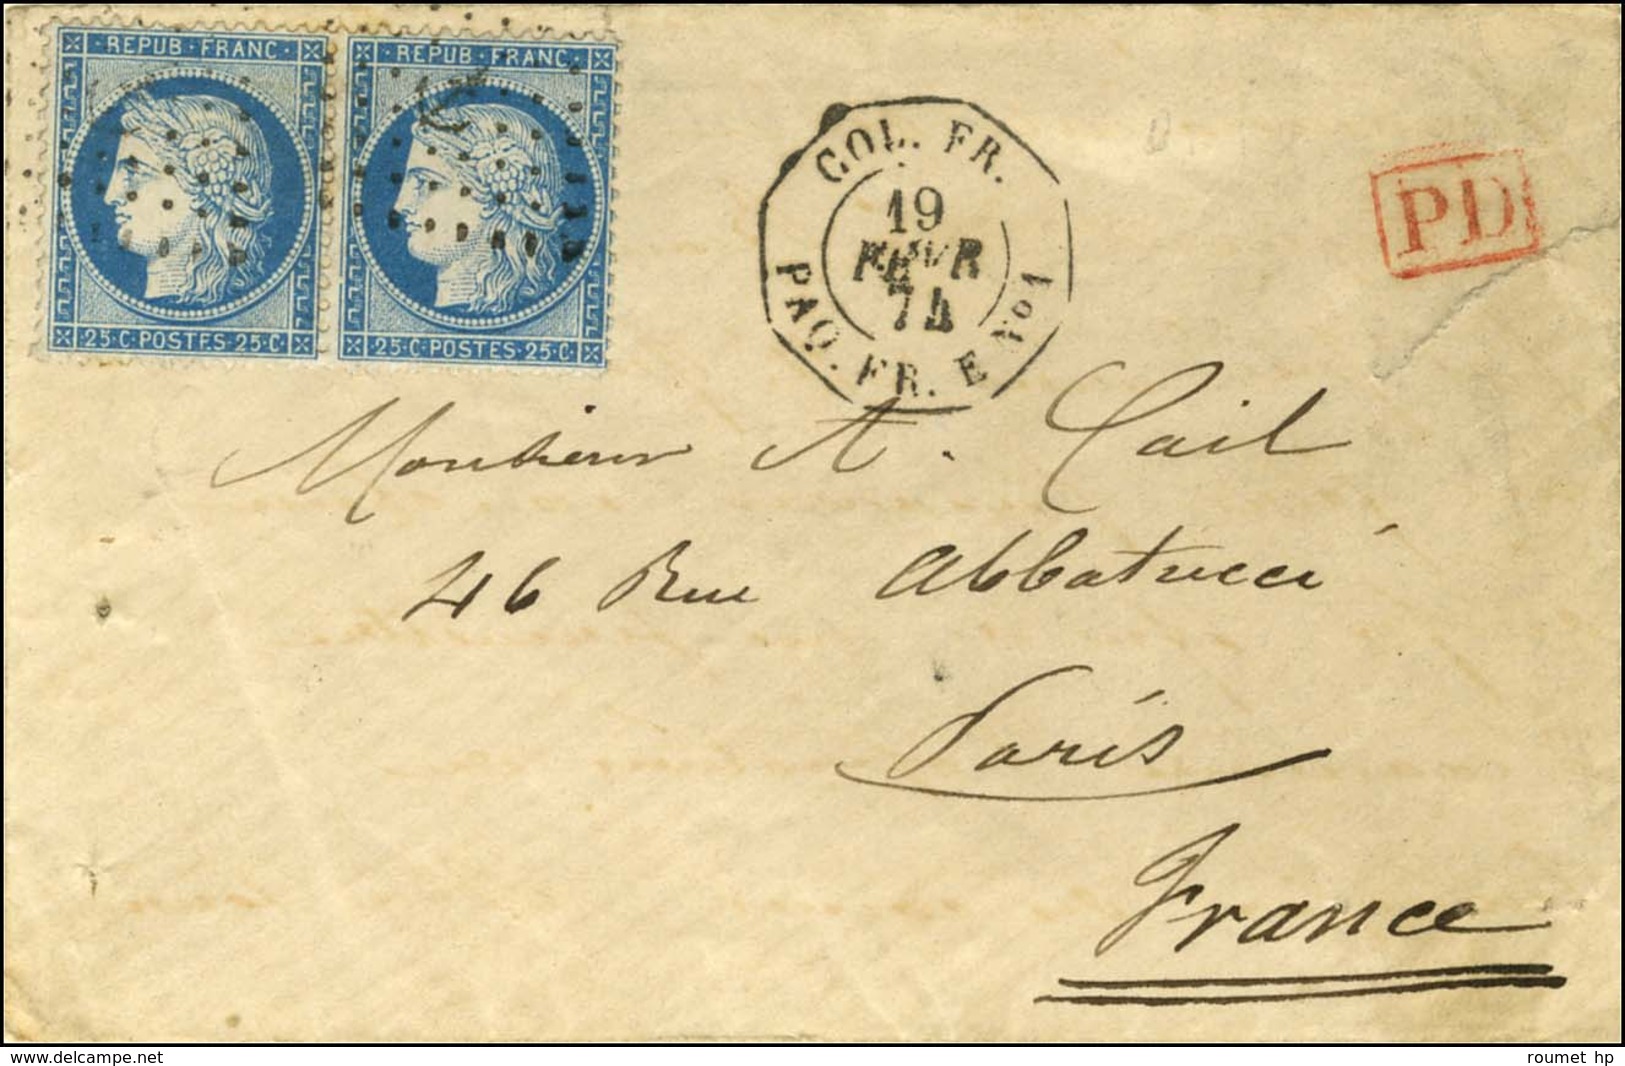 REPUB · FRANC ·
· REPUB · FRANC ·
25 · C · POSTES · 25 · C
25 · C · POSTES · 25 · C
COL. FR.
19
FEVR
74
PAQ. FR. E No 1
PD
Monsieur A. Cail
46 Rue Abbatucci
Paris
France
delcampe.net
roumet hp